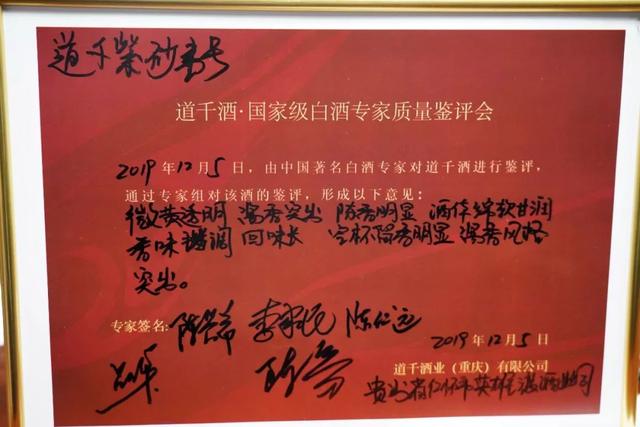 道千紫砂壽号
道千酒·国家级白酒专家质量鉴评会
2019年12月5日，由中国著名白酒专家对道千酒进行鉴评，
通过专家组对该酒的鉴评，形成以下意见：
微黄透明 酱香突出 陈香明显 酒体绵软甘润
香味谐调 回味长 空杯留香明显 酱香风格
突出。
专家签名: 陈仁远
2019年12月5日
道千酒业（重庆）有限公司
贵州省仁怀市英雄渡酒业公司